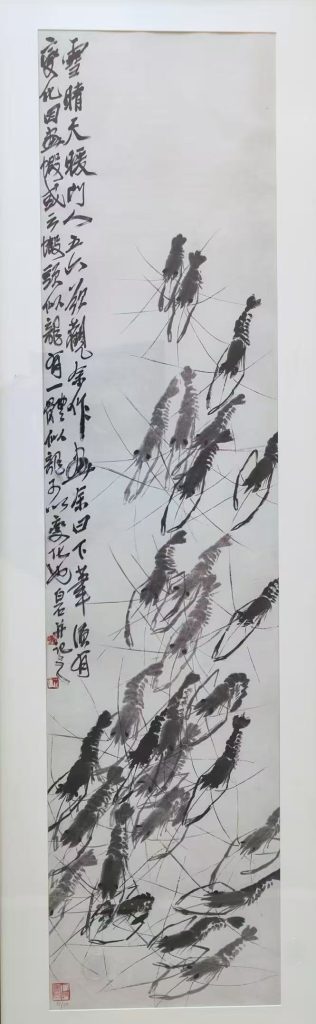 雪晴天暖門人五六欲觀余作畫余曰下筆須有
變化因畫蝦或云蝦頭似龍有一體似龍可以變化也白石并記之